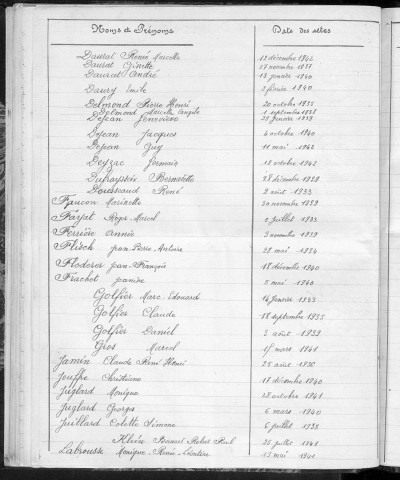 Noms et Prénoms Date des actes
Daurat Renée Marcelle 12 décembre 1942
Daurat Ginette
Daurat André 13 janvier 1940
Daury Emile 2 février 1940
Delmond Pierre Henri 20 octobre 1935
Delmond Marcelle
Dejean Geneviève 29 janvier 1939
Dejean Jacques 4 octobre 1940
Dejean Guy 11 mai 1942
Deyzac Germain 12 octobre 1942
Bernadette 28 décembre 1939
René 2 août 1933
Faucon Marinette 30 novembre 1939
Fayat Roger Marcel 6 juillet 1933
Ferrière Année 3 novembre 1939
Flisch Jean-Pierre Antoine 28 mai 1934
Jean-François 18 décembre 1940
Frachet Janine 5 mai 1940
Golfier Marc Edouard 14 janvier 1933
Golfier Claude 18 septembre 1935
Golfier Daniel 3 août 1939
Gros Marcel 15 mars 1941
Jamin Claude René Henri 25 août 1936
Jouffre Christiane 18 décembre 1940
Juglard Monique 28 octobre 1941
Juglard Georges 6 mars 1940
Juillard Colette Simone 6 juillet 1938
Klein Bernard Robert Paul 25 juillet 1941
Labrousse Monique Renée 13 mai 1941